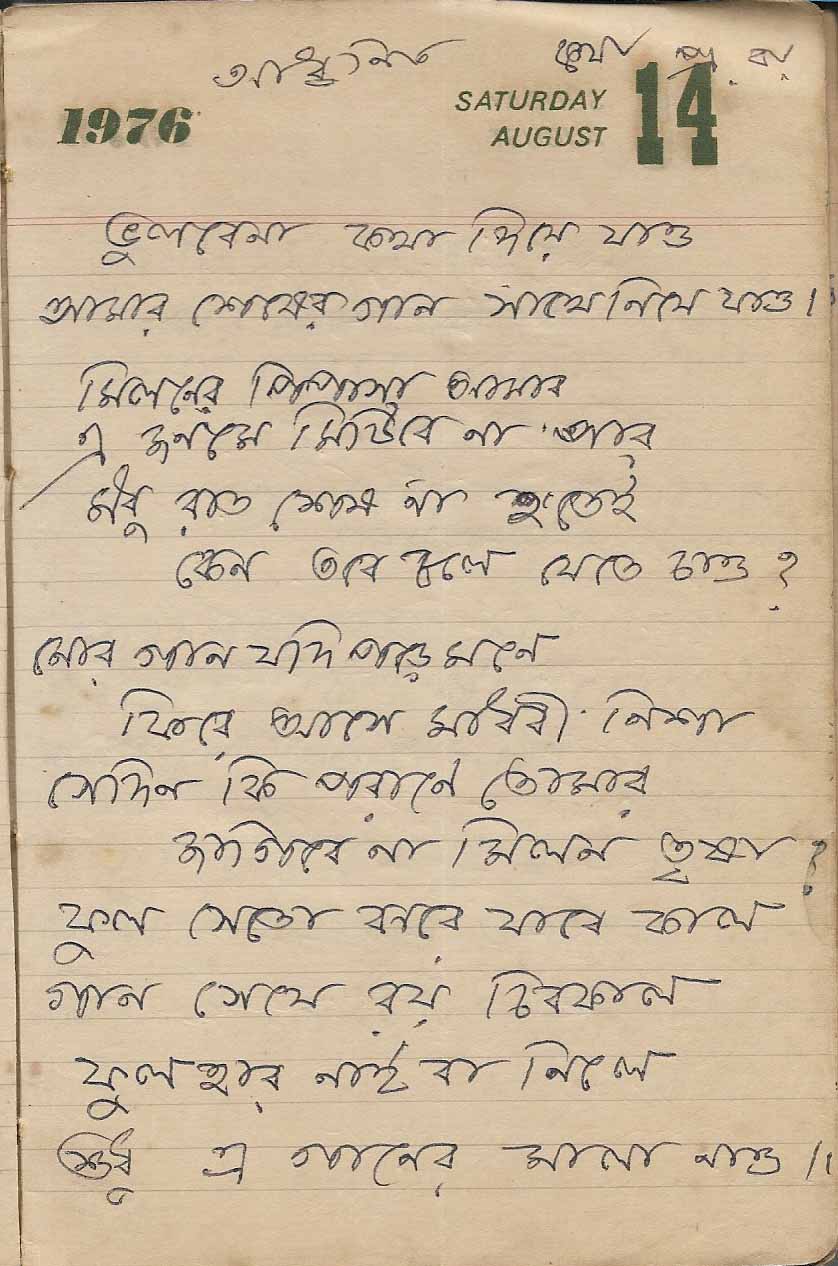 আধুনিক
1976
SATURDAY
AUGUST
14
ভুলবেনা কথা দিয়ে যাও
আমার শেষের গান সাথে নিয়ে যাও।
মিলনের পিপাসা আমার
এ জনমে মিটিবে না আর
মধু রাত শেষ না হতেই
কেন তবে চলে যেতে চাও ?
মোর গান যদি পড়ে মনে
ফিরে আসে মাধবী নিশা
সেদিন কি পরানে তোমার
জাগিবে না মিলন তৃষা ?
ফুল সেতো ঝরে যাবে কাল
গান সেযে রয় চিরকাল
ফুল হার নাই বা নিলে
শুধু এ গানের মালা নাও ॥